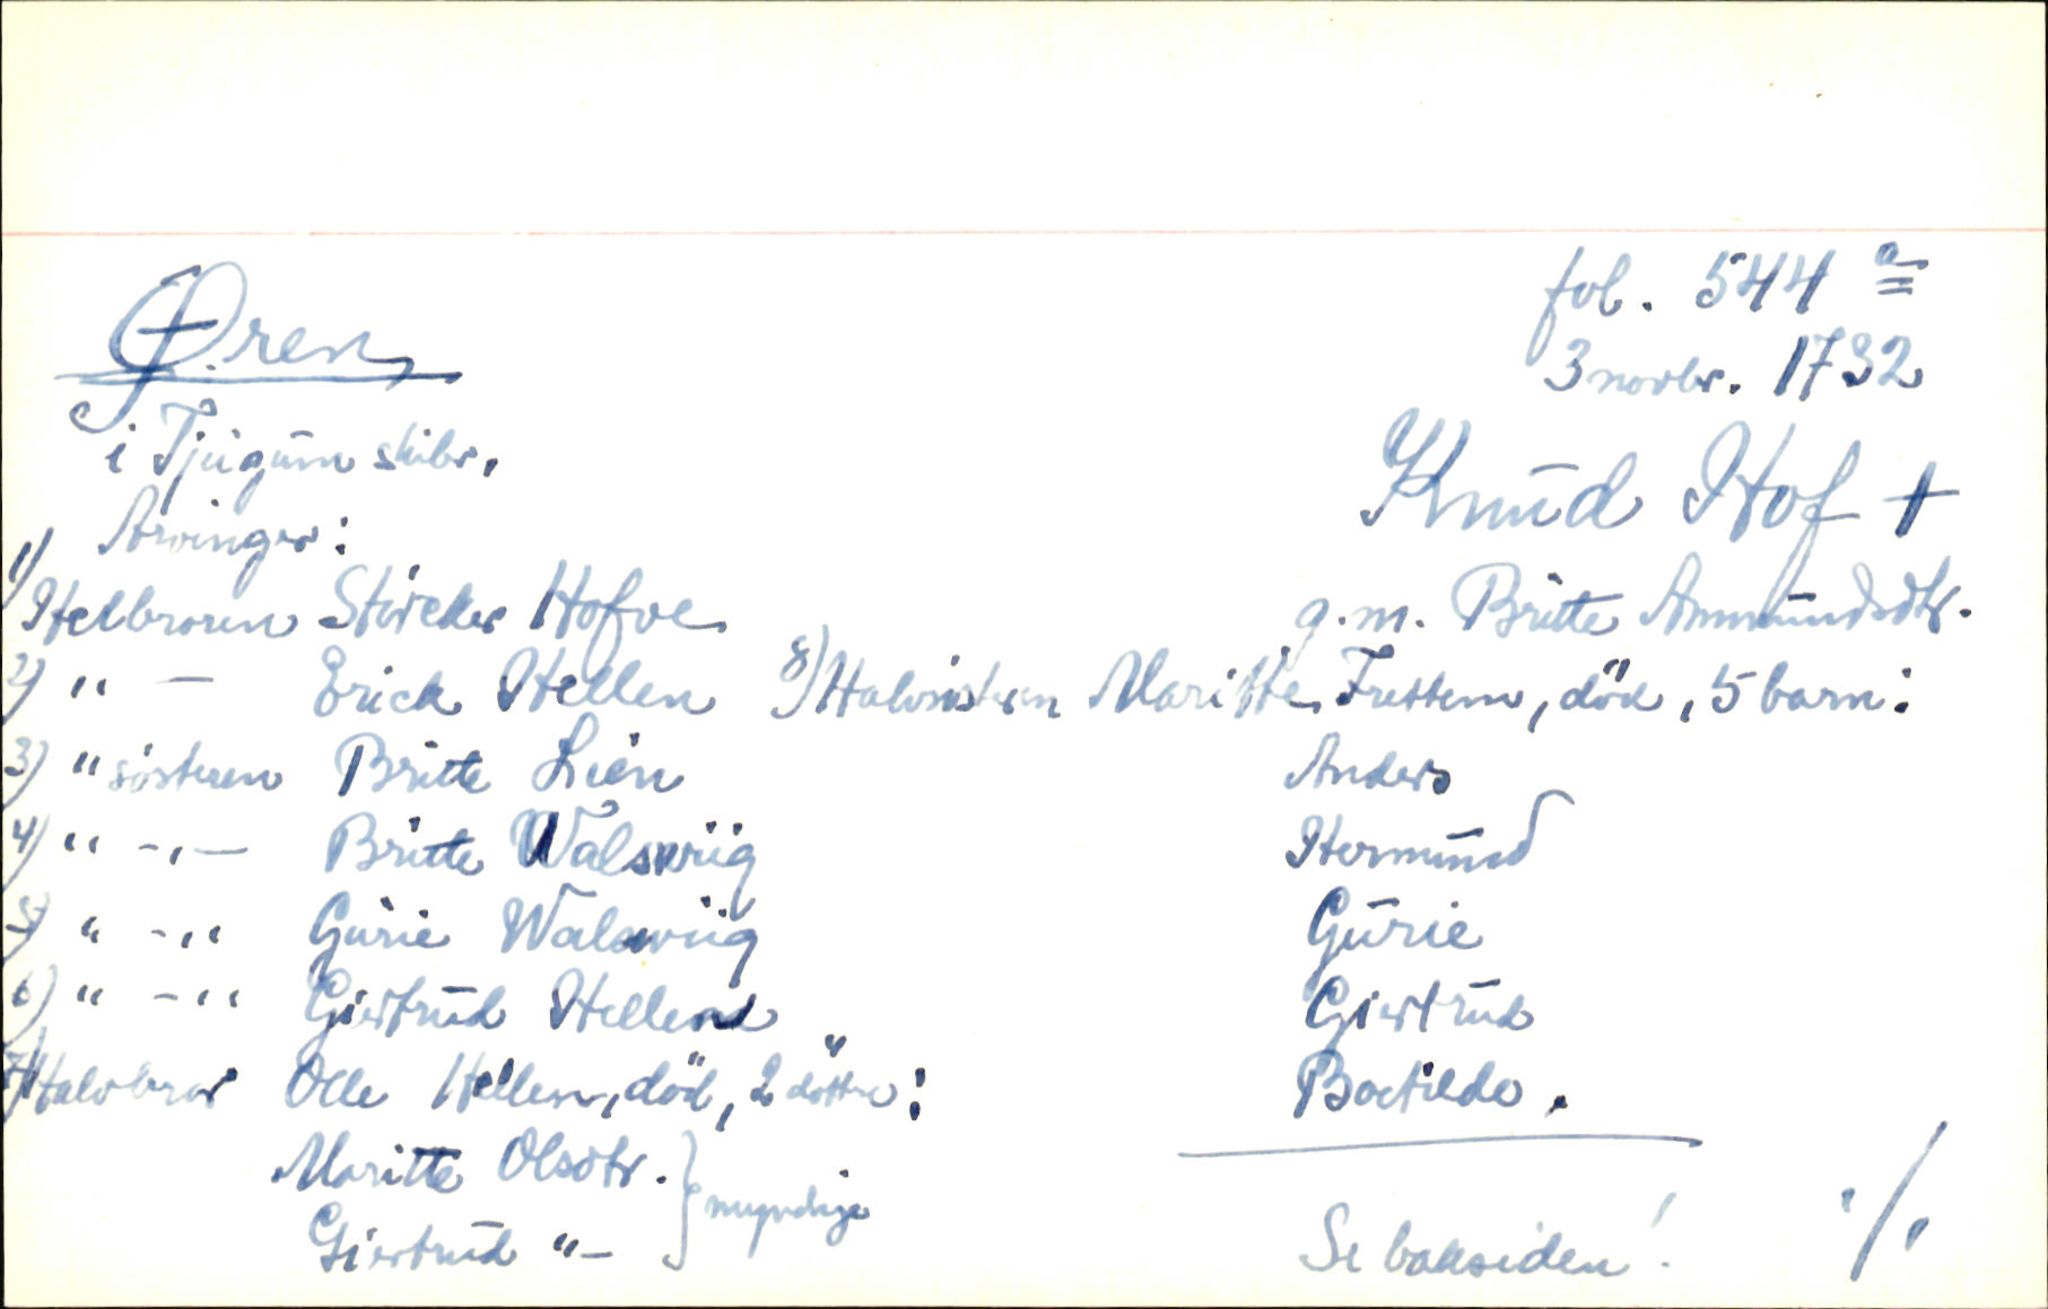 fol. 544 a
Øren
3 novbr. 1732
i Tjugum skibr.
Knud Hof +
Arvinger:
g.m. Britte Ammundsdtr.
1) Helbroren Stircker Hofve
2) " — Erick Hellen
3) " søsteren Britte Lien
4) " -"- Britte Walswiig
5) " -" Gurie Walswiig
6) " -" Giertrud Hellene
7) Halvbror Olle Hellen, död, 2 döttre:
Maritte Olsdtr. } myndige
Giertrud "-
8) Halvsisteren Maritte Frettem, död, 5 barn:
Anders
Hermund
Gurie
Giertrud
Boetilde.
Se baksiden! ./.